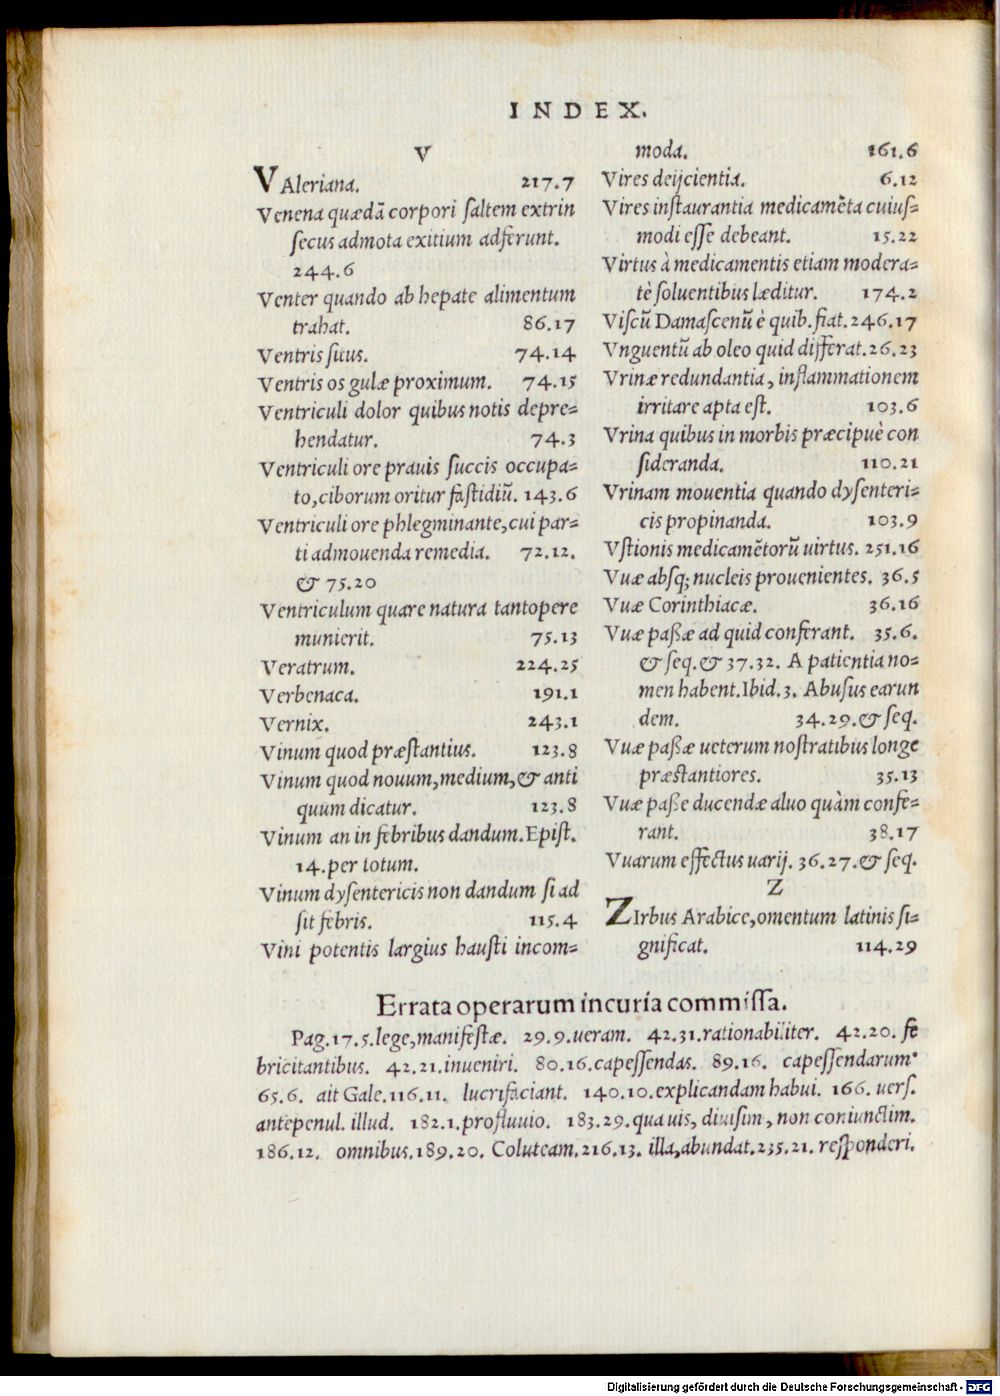 INDEX.
V
VAleriana. 217.7
Venena quædā corpori saltem extrin
secus admota exitium adferunt.
244.6
Venter quando ab hepate alimentum
trahat. 86.17
Ventris situs. 74.14
Ventris os gulæ proximum. 74.15
Ventriculi dolor quibus notis depre=
hendatur. 74.3
Ventriculi ore prauis succis occupa=
to, ciborum oritur fastidiū. 143.6
Ventriculi ore phlegminante, cui par=
ti admouenda remedia. 72.12.
& 75.20
Ventriculum quare natura tantopere
munierit. 75.13
Veratrum. 224.25
Verbenaca. 191.1
Vernix. 243.1
Vinum quod præstantius. 123.8
Vinum quod nouum, medium, & anti
quum dicatur. 123.8
Vinum an in febribus dandum. Epist.
14. per totum.
Vinum dysentericis non dandum si ad
sit febris. 115.4
Vini potentis largius hausti incom=
moda. 161.6
Vires deijcientia. 6.12
Vires instaurantia medicamēta cuius=
modi esse debeant. 15.22
Virtus à medicamentis etiam modera=
tè soluentibus læditur. 174.2
Viscū Damascenū è quib. fiat. 246.17
Vnguentū ab oleo quid differat. 26.23
Vrinæ redundantia, inflammationem
irritare apta est. 103.6
Vrina quibus in morbis præcipuè con
sideranda. 110.21
Vrinam mouentia quando dysenteri=
cis propinanda. 103.9
Vstionis medicamētorū uirtus. 251.16
Vuæ absq; nucleis prouenientes. 36.5
Vuæ Corinthiacæ. 36.16
Vuæ paßæ ad quid conferant. 35.6.
& seq. & 37.32. A patientia no=
men habent. Ibid. 3. Abusus earun
dem. 34.29. & seq.
Vuæ paßæ ueterum nostratibus longe
præstantiores. 35.13
Vuæ paße ducendæ aluo quàm confe=
rant. 38.17
Vuarum effectus uarij. 36.27. & seq.
Z
ZIrbus Arabice, omentum latinis si=
gnificat. 114.29
Errata operarum incuria commissa.
Pag. 17.5. lege, manifestæ. 29.9. ueram. 42.31. rationabiliter. 42.20. fe
bricitantibus. 42.21. inueniri. 80.16. capessendas. 89.16. capessendarum.
65.6. ait Gale. 116.11. lucrifaciant. 140.10. explicandam habui. 166. uers.
antepenul. illud. 182.1. profluuio. 183.29. qua uis, diuisim, non coniunctim.
186.12. omnibus. 189.20. Coluteam. 216.13. illa, abundat. 235.21. responderi.
Digitalisierung gefördert durch die Deutsche Forschungsgemeinschaft - DFG